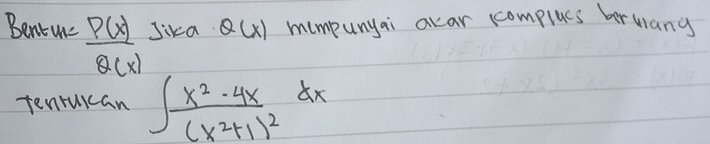 Bentuk P(x)/Q(x) Jika Q(x) mempunyai akar kompleks berulang
Tentukan ∫ x² - 4x / (x²+1)² dx